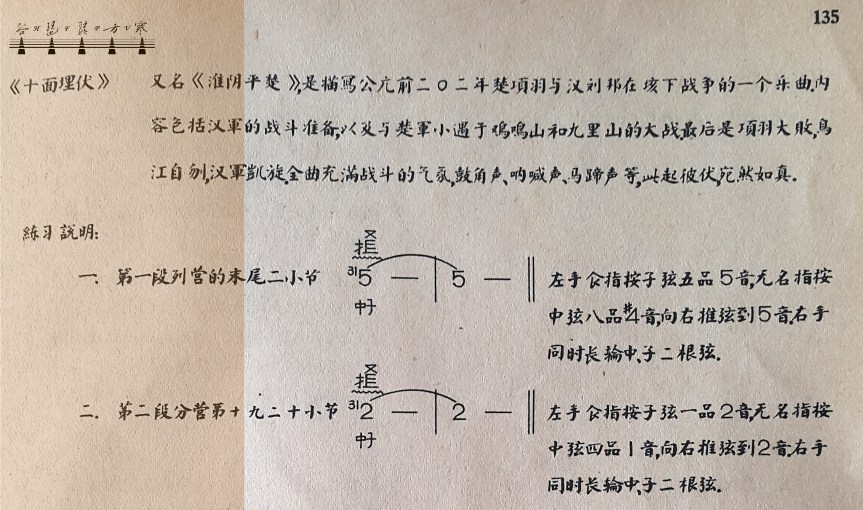 135
《十面埋伏》 又名《淮阴平楚》,是描写公元前二〇二年楚項羽与汉刘邦在垓下战争的一个乐曲,内
容包括汉軍的战斗准备,以及与楚軍小遇于鸡鸣山和九里山的大战,最后是項羽大敗,烏
江自刎,汉軍凱旋,全曲充滿战斗的气氛,鼓角声、呐喊声、马蹄声等,此起彼伏,宛然如真.
練习説明:
一. 第一段列营的末尾二小节 31 5 — 5 — 左手食指按子弦五品5音,无名指按
中子 中弦八品#4音,向右推弦到5音,右手
同时长输中、子二根弦.
二. 第二段分营第十九二十小节 31 2 — 2 — 左手食指按子弦一品2音,无名指按
中子 中弦四品1音,向右推弦到2音,右手
同时长输中、子二根弦.